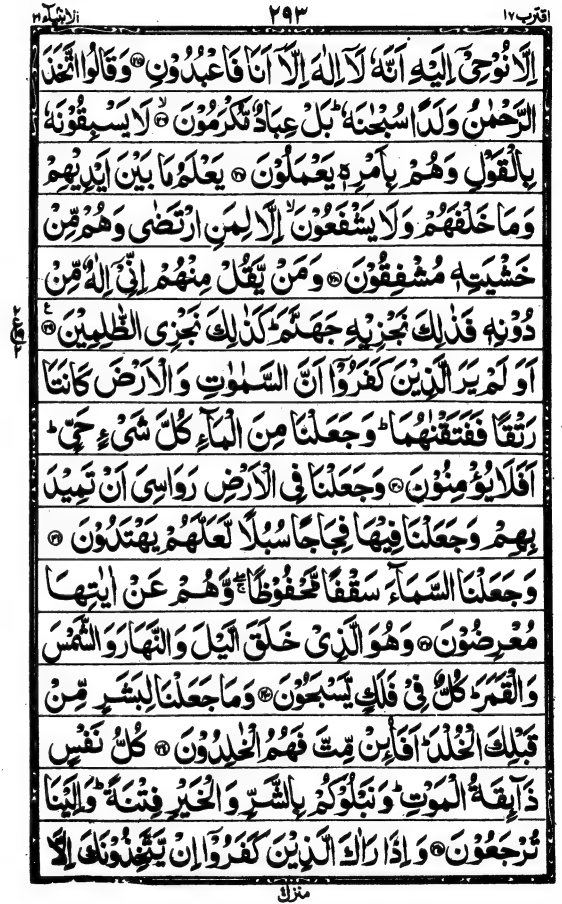 اقترب ١٧ ٢٩٣ الانبیآء ٢١
اِلَّا نُوْحِیْۤ اِلَیْهِ اَنَّهٗ لَاۤ اِلٰهَ اِلَّاۤ اَنَا فَاعْبُدُوْنِ ﴿٢٥﴾ وَقَالُوا اتَّخَذَ
الرَّحْمٰنُ وَلَدًا سُبْحٰنَهٗ ؕ بَلْ عِبَادٌ مُّكْرَمُوْنَ ﴿٢٦﴾ۙ لَا یَسْبِقُوْنَهٗ
بِالْقَوْلِ وَهُمْ بِاَمْرِهٖ یَعْمَلُوْنَ ﴿٢٧﴾ یَعْلَمُ مَا بَیْنَ اَیْدِیْهِمْ
وَمَا خَلْفَهُمْ وَلَا یَشْفَعُوْنَ ۙ اِلَّا لِمَنِ ارْتَضٰی وَهُمْ مِّنْ
خَشْیَتِهٖ مُشْفِقُوْنَ ﴿٢٨﴾ وَمَنْ یَّقُلْ مِنْهُمْ اِنِّیْۤ اِلٰهٌ مِّنْ
دُوْنِهٖ فَذٰلِكَ نَجْزِیْهِ جَهَنَّمَ ؕ كَذٰلِكَ نَجْزِی الظّٰلِمِیْنَ ﴿٢٩﴾ع
اَوَ لَمْ یَرَ الَّذِیْنَ كَفَرُوْۤا اَنَّ السَّمٰوٰتِ وَالْاَرْضَ كَانَتَا
رَتْقًا فَفَتَقْنٰهُمَا ؕ وَجَعَلْنَا مِنَ الْمَآءِ كُلَّ شَیْءٍ حَیٍّ ؕ
اَفَلَا یُؤْمِنُوْنَ ﴿٣٠﴾ وَجَعَلْنَا فِی الْاَرْضِ رَوَاسِیَ اَنْ تَمِیْدَ
بِهِمْ وَجَعَلْنَا فِیْهَا فِجَاجًا سُبُلًا لَّعَلَّهُمْ یَهْتَدُوْنَ ﴿٣١﴾
وَجَعَلْنَا السَّمَآءَ سَقْفًا مَّحْفُوْظًا ۚۖ وَّهُمْ عَنْ اٰیٰتِهَا
مُعْرِضُوْنَ ﴿٣٢﴾ وَهُوَ الَّذِیْ خَلَقَ الَّیْلَ وَالنَّهَارَ وَالشَّمْسَ
وَالْقَمَرَ ؕ كُلٌّ فِیْ فَلَكٍ یَّسْبَحُوْنَ ﴿٣٣﴾ وَمَا جَعَلْنَا لِبَشَرٍ مِّنْ
قَبْلِكَ الْخُلْدَ ؕ اَفَا۟ئِنْ مِّتَّ فَهُمُ الْخٰلِدُوْنَ ﴿٣٤﴾ كُلُّ نَفْسٍ
ذَآىِٕقَةُ الْمَوْتِ ؕ وَنَبْلُوْكُمْ بِالشَّرِّ وَالْخَیْرِ فِتْنَةً ؕ وَاِلَیْنَا
تُرْجَعُوْنَ ﴿٣٥﴾ وَاِذَا رَاٰكَ الَّذِیْنَ كَفَرُوْۤا اِنْ یَّتَّخِذُوْنَكَ اِلَّا